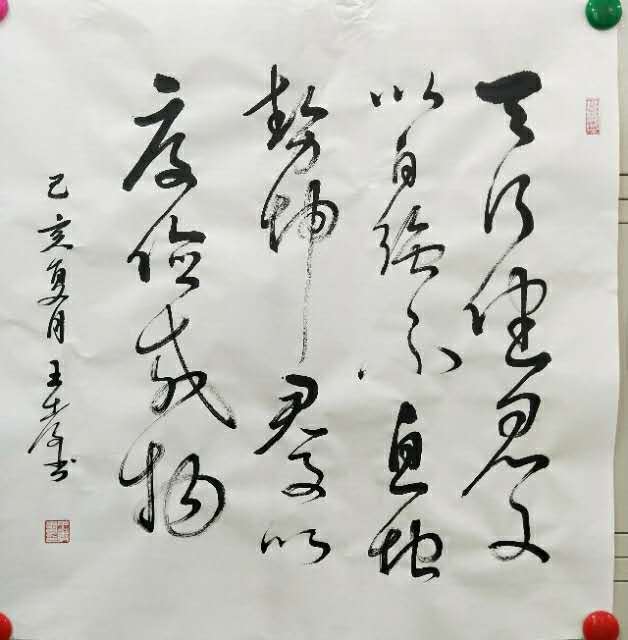 天行健君子
以自強不息地
勢坤君子以
厚德載物
己亥夏月王书